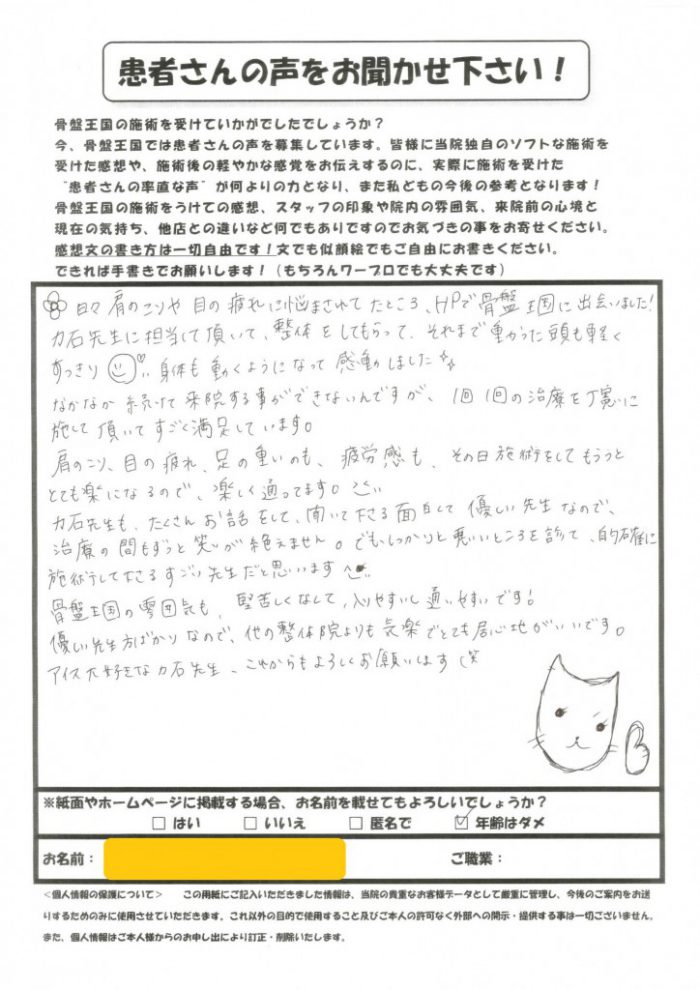 患者さんの声をお聞かせ下さい！
骨盤王国の施術を受けていかがでしたでしょうか？
今、骨盤王国では患者さんの声を募集しています。皆様に当院独自のソフトな施術を
受けた感想や、施術後の軽やかな感覚をお伝えするのに、実際に施術を受けた
"患者さんの率直な声"が何よりの力となり、また私どもの今後の参考となります！
骨盤王国の施術をうけての感想、スタッフの印象や院内の雰囲気、来院前の心境と
現在の気持ち、他店との違いなど何でもありですのでお気づきの事をお寄せください。
感想文の書き方は一切自由です！文でも似顔絵でもご自由にお書きください。
できれば手書きでお願いします！（もちろんワープロでも大丈夫です）
日々肩のこりや目の疲れに悩まされてたところ、HPで骨盤王国に出会いました！
力石先生に担当して頂いて、整体をしてもらって、それまで重かった頭も軽く
すっきり 身体も動くようになって感動しました
なかなか続けて来院する事ができないんですが、1回1回の治療を丁寧に
施して頂いてすごく満足しています。
肩のこり、目の疲れ、足の重いのも、疲労感も、その日施術をしてもらうと
とても楽になるので、楽しく通ってます。
力石先生も、たくさんお話をして、聞いて下さる面白くて優しい先生なので、
治療の間もずっと笑いが絶えません。でも、しっかりと悪いところを診て、的確に
施術して下さるすごい先生だと思います
骨盤王国の雰囲気も、堅苦しくなくて、入りやすいし通いやすいです！
優しい先生方ばかりなので、他の整体院よりも気楽でとても居心地がいいです。
アイス大好きな力石先生、これからもよろしくお願いします（笑
※紙面やホームページに掲載する場合、お名前を載せてもよろしいでしょうか？
□ はい □ いいえ □ 匿名で ☑ 年齢はダメ
お名前： ご職業：
＜個人情報の保護について＞ この用紙にご記入いただきました情報は、当院の貴重なお客様データとして厳重に管理し、今後のご案内をお送
りするためのみに使用させていただきます。これ以外の目的で使用すること及びご本人の許可なく外部への開示・提供する事は一切ございません。
また、個人情報はご本人様からのお申し出により訂正・削除いたします。